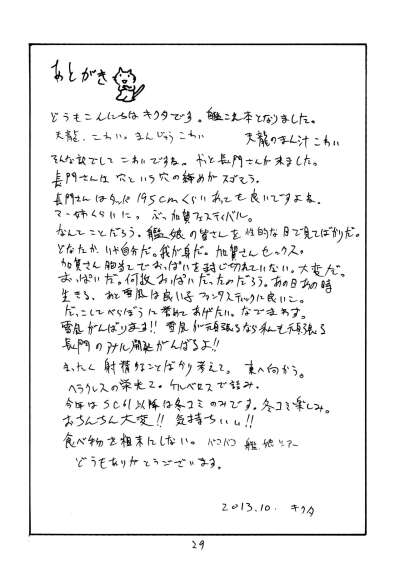 あとがき
どうもこんにちはキクタです。艦これ本となりました。
天龍、こわい。まんじゅうこわい 天龍のまん汁こわい
そんな訳でして こわいですね。やと長門さんが来ました。
長門さんは穴という穴の締めがスゴそう。
長門さんはタッパ195cmくらいあっても良いですよね。
マー姉くらいに。ぶ、加賀フェスティバル。
なんてことだろう。艦娘の皆さんを性的な目で見てばかりだ。
どなたか は自分だ。我が身だ。加賀さんセックス。
加賀さん胸当てでおっぱいを封じ切れていない。大変だ。
おっぱいだ。何故おっぱいだったのだろう。あの日あの時
生きる、あと雪風は良い子ファンタスティックに良いこ。
だ、こしてべらぼうに誉めてあげたい。なでまわす。
雪風がんばります!! 雪風が頑張るなら私も頑張る
長門のアナル開発がんばるよ!!
まったく射精なことばかり考えて。東へ向かう。
ヘラクレスの栄光で。ケルベロスで詰み。
今年はSC61以降は冬コミのみです。冬コミ楽しみ。
おちんちん大変!! 気持ちいい!!
食べ物を粗末にしない。パコパコ 艦娘ツアー
どうもありがとうございます。
2013.10. キクタ
29